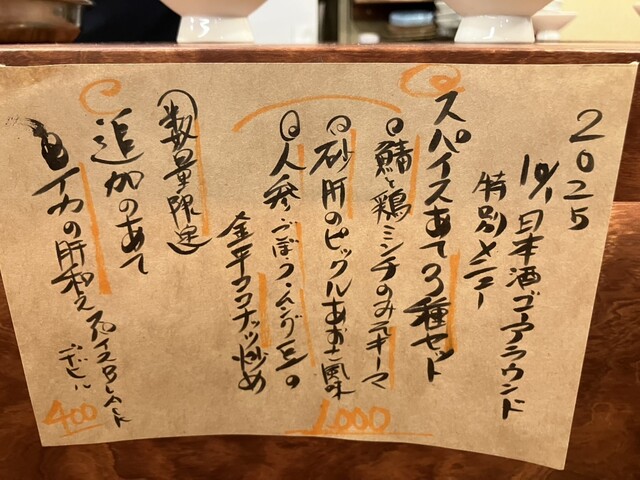 2025
10/1日本酒ゴーアラウンド
特別メニュー
スパイスあて3種セット
鯖と鶏ミンチのみそキーマ
砂肝のピックルあおさ風味
人参、ごぼう、ムング豆の
金平ココナッツ炒め
1,000
(数量限定)
追加のあて
イカの肝和えスパイスBLACK
400